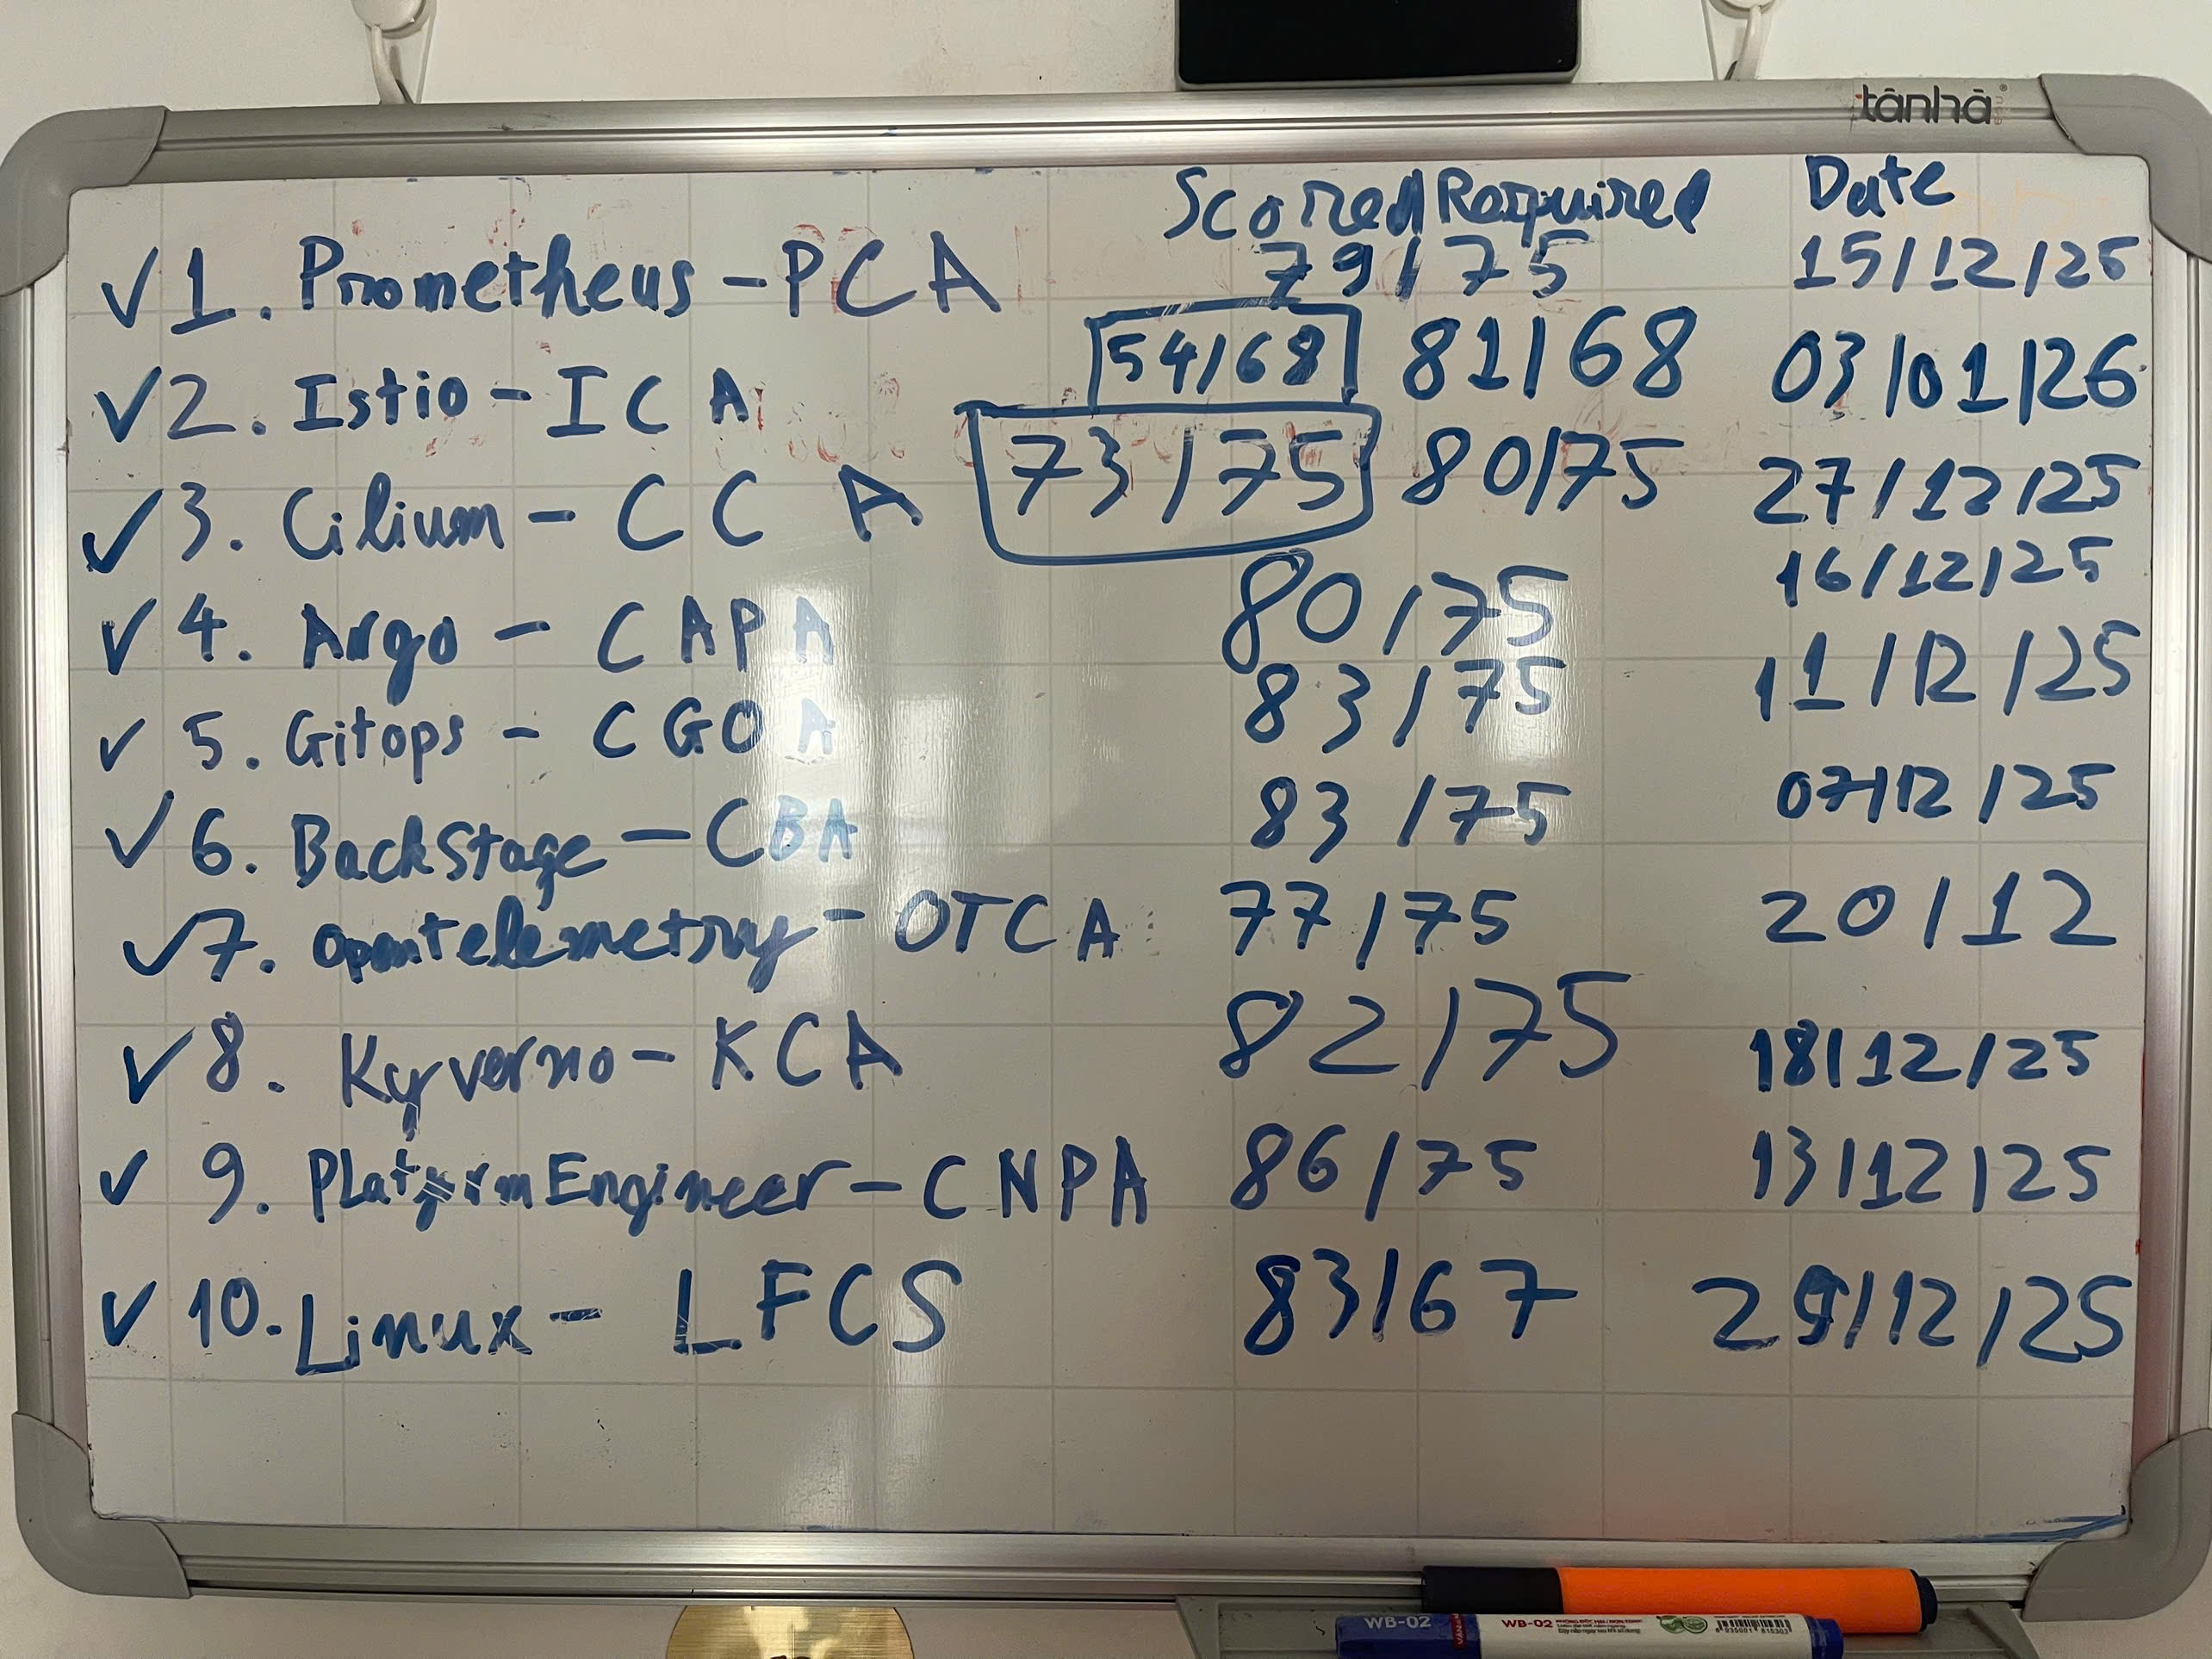 tânhā
Scored Required Date
✓ 1. Prometheus - PCA 79/75 15/12/25
✓ 2. Istio - ICA 54/68 81/68 03/01/26
✓ 3. Cilium - CCA 73/75 80/75 27/12/25
✓ 4. Argo - CAPA 80/75 16/12/25
✓ 5. Gitops - CGOA 83/75 11/12/25
✓ 6. BackStage - CBA 83/75 07/12/25
✓ 7. Opentelemetry - OTCA 77/75 20/12
✓ 8. Kyverno - KCA 82/75 18/12/25
✓ 9. Platform Engineer - CNPA 86/75 13/12/25
✓ 10. Linux - LFCS 83/67 29/12/25
WB-02 WB-02